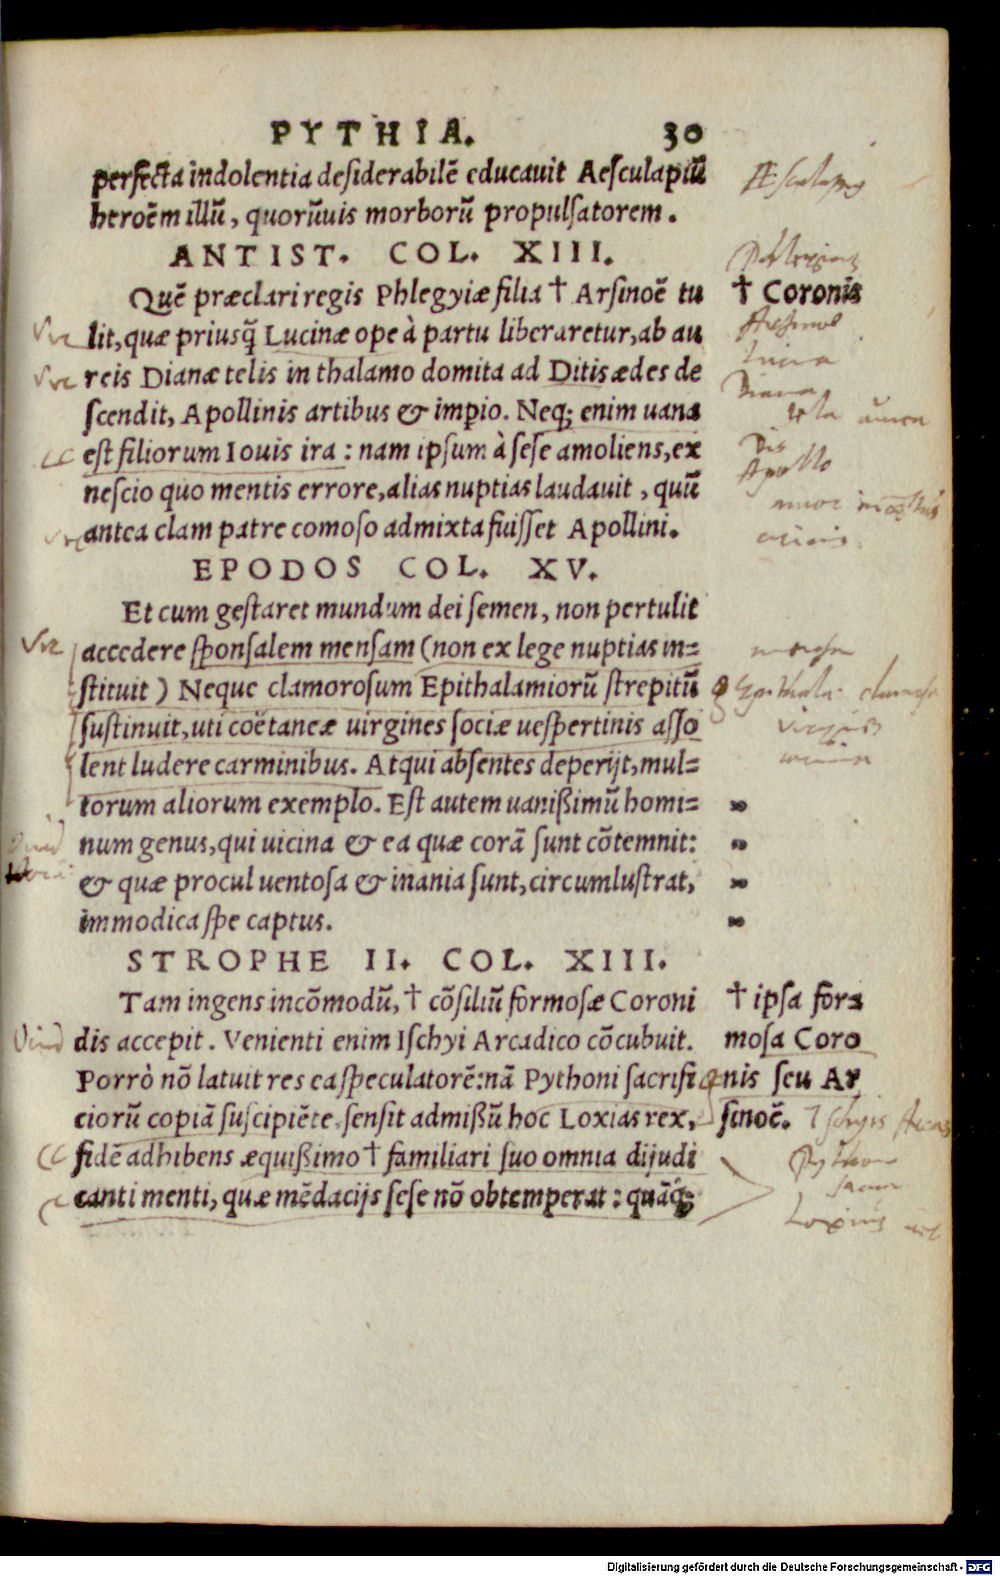 PYTHIA. 30
perfecta indolentia desiderabilē educauit Aesculapiū
heroēm illū, quorūuis morborū propulsatorem.
Æsculapius
ANTIST. COL. XIII.
Quē præclari regis Phlegyiæ filia † Arsinoē tu
† Coronis
lit, quæ priusq̃ Lucinæ ope à partu liberaretur, ab au
Arsinoe
Lucina
reis Dianæ telis in thalamo domita ad Ditis ædes de
Diana
scendit, Apollinis artibus & imp̱io. Neq; enim uana
tela aurea
est filiorum Iouis ira: nam ipsum à sese amoliens, ex
Dis
Apollo
nescio quo mentis errore, alias nuptias laudauit, quū
antea clam patre comoso admixta fuisset Apollini.
EPODOS COL. XV.
Et cum gestaret mundum dei semen, non pertulit
accedere sponsalem mensam (non ex lege nuptias in=
mensa
stituit) Neque clamorosum Epithalamiorū strepitū
Epithala:
sustinuit, uti coētaneæ uirgines sociæ uespertinis asso
lent ludere carminibus. Atqui absentes deperijt, mul=
torum aliorum exemplo. Est autem uanißimū homi=
num genus, qui uicina & ea quæ corā sunt cōtemnit:
& quæ procul uentosa & inania sunt, circumlustrat,
immodica spe captus.
STROPHE II. COL. XIII.
Tam ingens incōmodū, † cōsiliū formosæ Coroni
† ipsa for=
dis accepit. Venienti enim Ischyi Arcadico cōcubuit.
mosa Coro
Porrò nō latuit res ea speculatorē: nā Pythoni sacrifi
nis seu Ar
ciorū copiā suscipiēte, sensit admißū hoc Loxias rex,
sinoē.
Ischyis Arcas
fidē adhibens æquißimo † familiari suo omnia dijudi
Python
canti menti, quæ mēdacijs sese nō obtemperat: quāq;
Loxias
Digitalisierung gefördert durch die Deutsche Forschungsgemeinschaft - DFG